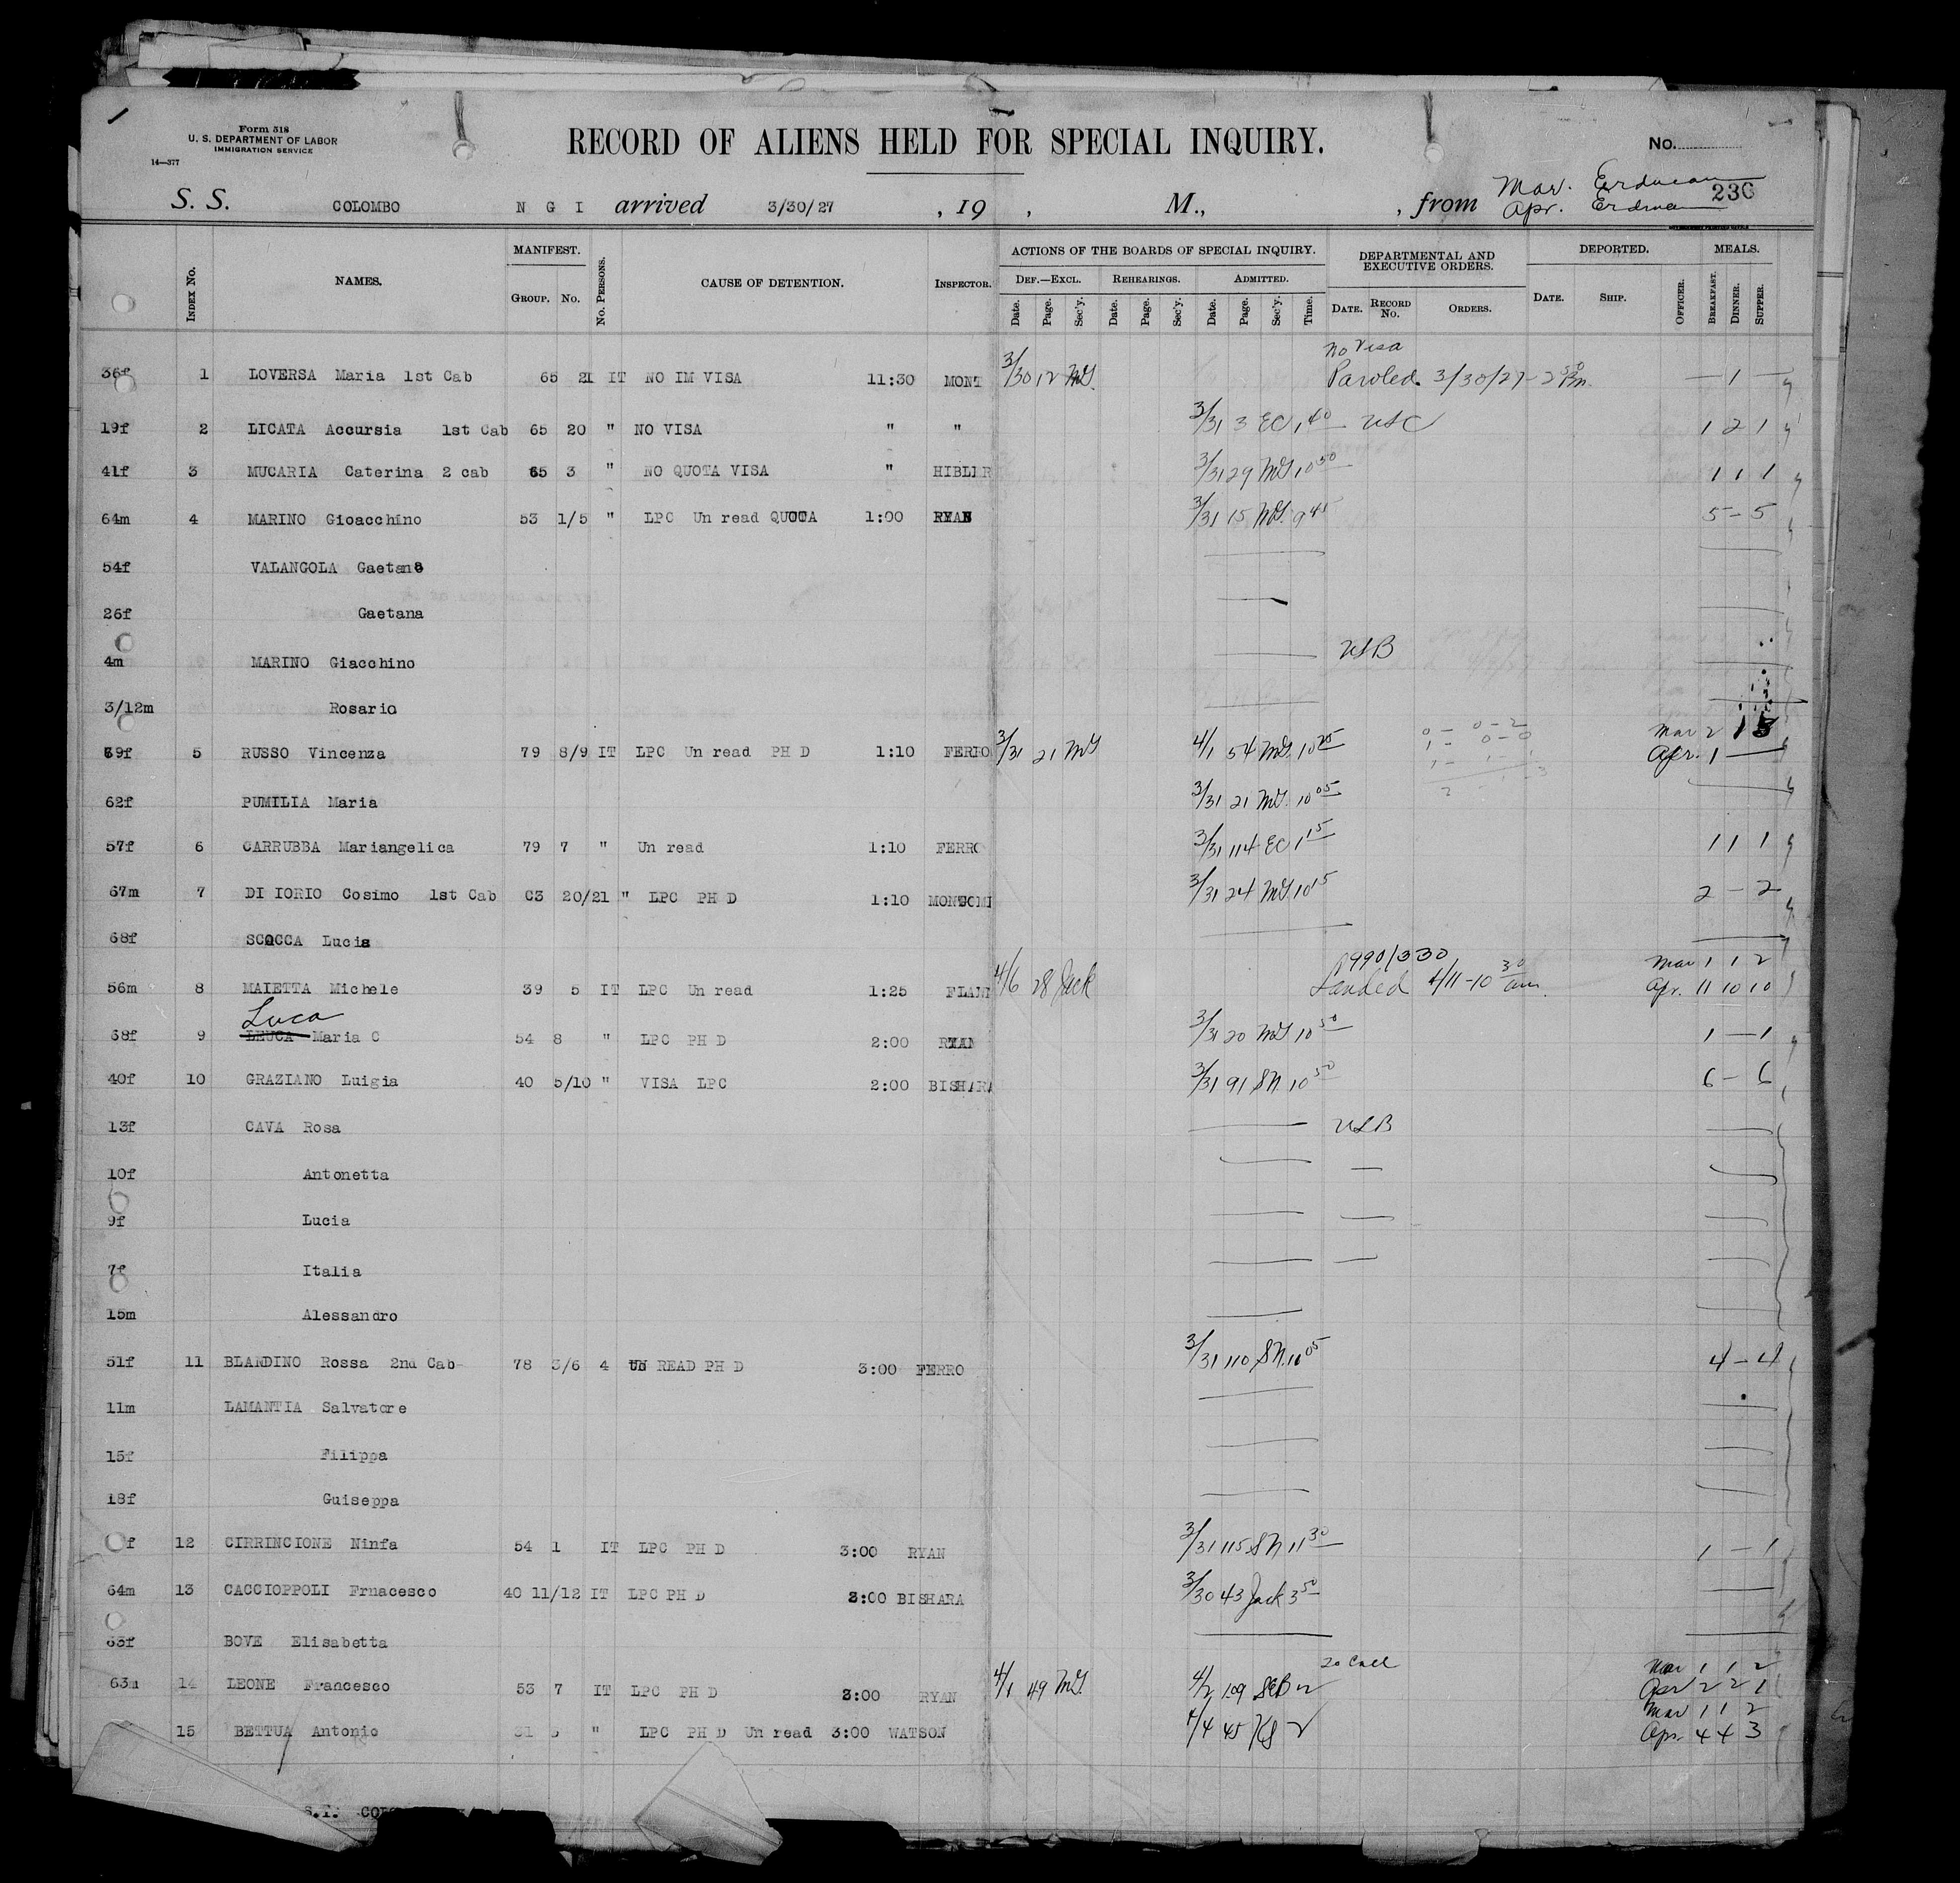 Form 518
U. S. DEPARTMENT OF LABOR
IMMIGRATION SERVICE
14—377
RECORD OF ALIENS HELD FOR SPECIAL INQUIRY.
No.
Mar. Erdman
S. S. COLOMBO N G I arrived 3/30/27 , 19 , M., , from Apr. Erdman 230
INDEX No. NAMES. MANIFEST. GROUP. No. No. PERSONS. CAUSE OF DETENTION. INSPECTOR. ACTIONS OF THE BOARDS OF SPECIAL INQUIRY. DEF.—EXCL. Date. Page. Sec'y. REHEARINGS. Date. Page. Sec'y. ADMITTED. Date. Page. Sec'y. Time. DEPARTMENTAL AND EXECUTIVE ORDERS. DATE. RECORD No. ORDERS. DEPORTED. DATE. SHIP. OFFICER. MEALS. BREAKFAST. DINNER. SUPPER.
No Visa
36f 1 LOVERSA Maria 1st Cab 65 21 IT NO IM VISA 11:30 MONT 3/30 12 MG. Paroled. 3/30/27 - 2 50 Pm. — 1 —
19f 2 LICATA Accursia 1st Cab 65 20 " NO VISA " " 3/31 3 EC 1 40 USC 1 2 1
41f 3 MUCARIA Caterina 2 cab 65 3 " NO QUOTA VISA " HIBLER 3/31 29 MG 10 50 1 1 1
64m 4 MARINO Gioacchino 53 1/5 " LPC Un read QUOTA 1:00 RYAN 3/31 15 MG. 9 45 5 – 5
54f VALANGOLA Gaetana
26f Gaetana
4m MARINO Giacchino USB
3/12m Rosario
0 – 0 – 2
Mar 2 1 3
69f 5 RUSSO Vincenza 79 8/9 IT LPC Un read PH D 1:10 FERRO 3/31 21 MG 4/1 54 MG. 10 25 1 – 0 – 0 Apr. 1 —
62f PUMILIA Maria 3/31 21 MG. 10 05
57f 6 CARRUBBA Mariangelica 79 7 " Un read 1:10 FERRO 3/31 114 EC 1 15 1 1 1
67m 7 DI IORIO Cosimo 1st Cab C3 20/21 " LPC PH D 1:10 MONTGOM 3/31 24 MG 10 15 2 – 2
68f SCOCCA Lucia
99/0/330 Mar 1 1 2
56m 8 MAIETTA Michele 39 5 IT LPC Un read 1:25 FLANN 4/6 28 Jack Landed 4/11 - 10 30 am. Apr. 11 10 10
Luca
68f 9 LEUCA Maria C 54 8 " LPC PH D 2:00 RYAN 3/31 20 MG 10 50 1 – 1
40f 10 GRAZIANO Luigia 40 5/10 " VISA LPC 2:00 BISHARA 3/31 91 SN. 10 50 6 – 6
13f CAVA Rosa USB
10f Antonetta —
9f Lucia —
7f Italia —
15m Alessandro
51f 11 BLANDINO Rossa 2nd Cab 78 3/6 4 UN READ PH D 3:00 FERRO 3/31 110 SN. 11 05 4 – 4
11m LAMANTIA Salvatore
15f Filippa
18f Guiseppa
f 12 CIRRINCIONE Ninfa 54 1 IT LPC PH D 3:00 RYAN 3/31 115 SN 11 30 1 – 1
64m 13 CACCIOPPOLI Frnacesco 40 11/12 IT LPC PH D 3:00 BISHARA 3/30 43 Jack 3 50
63f BOVE Elisabetta
20 Call Mar 1 1 2
63m 14 LEONE Francesco 53 7 IT LPC PH D 3:00 RYAN 4/1 49 MG. 4/2 109 SEB Apr 2 2 1
Mar 1 1 2
15 BETTUA Antonio 31 5 " LPC PH D Un read 3:00 WATSON 4/4 45 Apr. 4 4 3